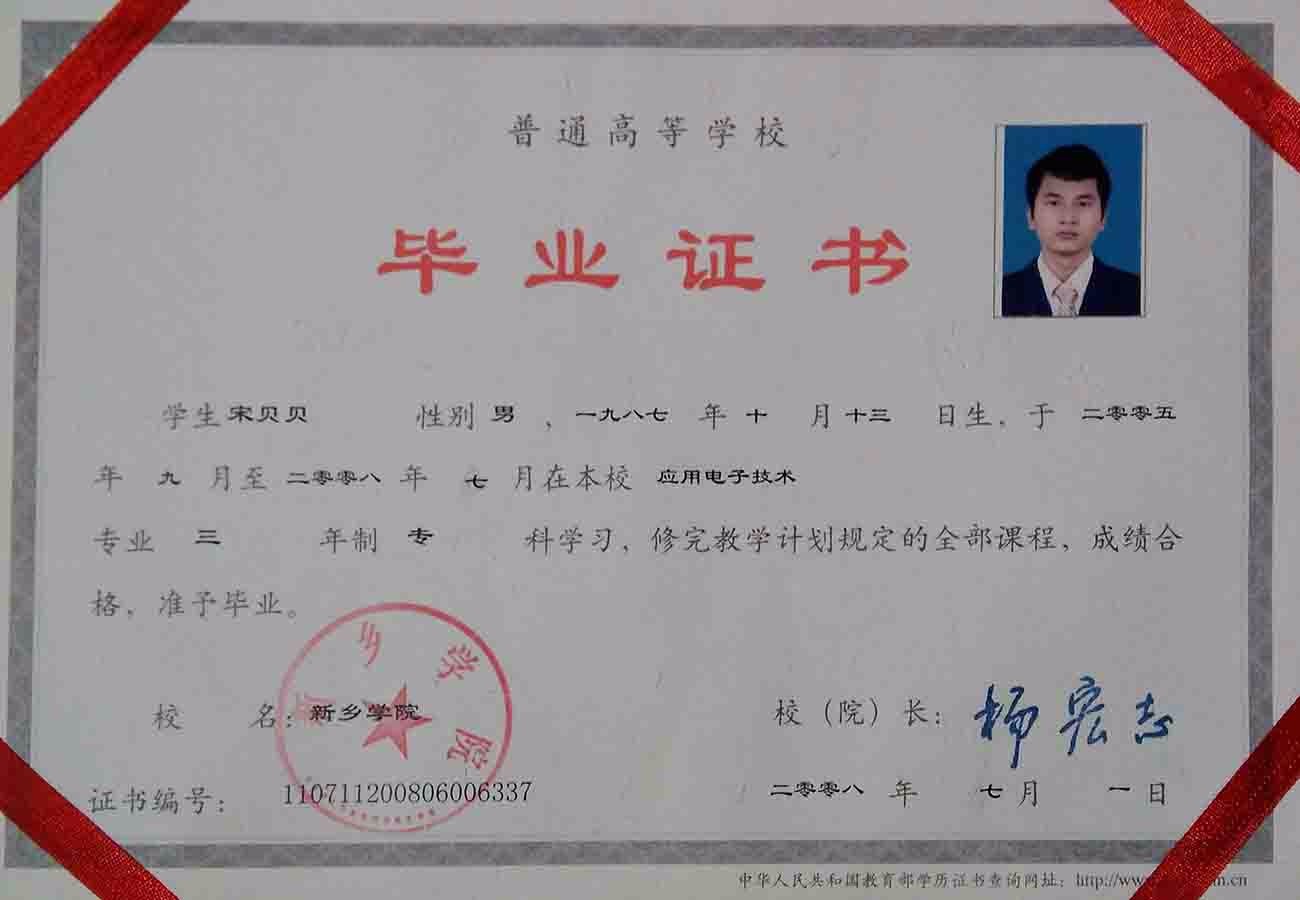 普通高等学校
毕业证书
学生 宋贝贝 性别 男 ，一九八七 年 十 月 十三 日生，于 二零零五
年 九 月至 二零零八 年 七 月在本校 应用电子技术
专业 三 年制 专 科学习，修完教学计划规定的全部课程，成绩合
格，准予毕业。
乡学院
校 名：新乡学院
校（院）长：杨宏志
证书编号：110711200806006337
二零零八 年 七 月 一 日
中华人民共和国教育部学历证书查询网址：http://www